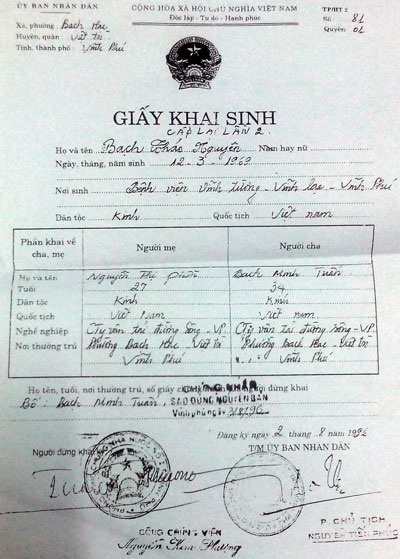 ỦY BAN NHÂN DÂN
Xã, phường Bạch Hạc
Huyện, quận Việt Trì
Tỉnh, thành phố Vĩnh Phú
CỘNG HÒA XÃ HỘI CHỦ NGHĨA VIỆT NAM
Độc lập - Tự do - Hạnh phúc
TP/HT 2
Số 81
Quyển 01
GIẤY KHAI SINH
CẤP LẠI LẦN 2.
Họ và tên Bạch Thảo Nguyên Nam hay nữ
Ngày, tháng, năm sinh 12-3-1969
Nơi sinh Bệnh viện Vĩnh Tường - Vĩnh Lạc - Vĩnh Phú
Dân tộc Kinh Quốc tịch Việt nam
Phần khai về cha, mẹ Người mẹ Người cha
Họ và tên Nguyễn Thị Bạch Minh Tuấn
Tuổi 27 34
Dân tộc Kinh Kinh
Quốc tịch Việt Nam Việt nam
Nghề nghiệp Cty vận tải đường sông - VP Cty vận tải đường sông - VP.
Nơi thường trú Phường Bạch Hạc - Việt Trì Phường Bạch Hạc - Việt Trì
Vĩnh Phú Vĩnh Phú
Họ, tên, tuổi, nơi thường trú, số giấy người đứng khai
CHỨNG NHẬN
Bố: Bạch Minh Tuấn,
SAO ĐÚNG NGUYÊN BẢN
Vĩnh phú ngày
Đăng ký ngày 2 tháng 8 năm 1996
Người đứng khai
T/M ỦY BAN NHÂN DÂN
CÔNG CHỨNG VIÊN
Nguyễn Phương
P. CHỦ TỊCH
NGUYỄN TIẾN PHÚC